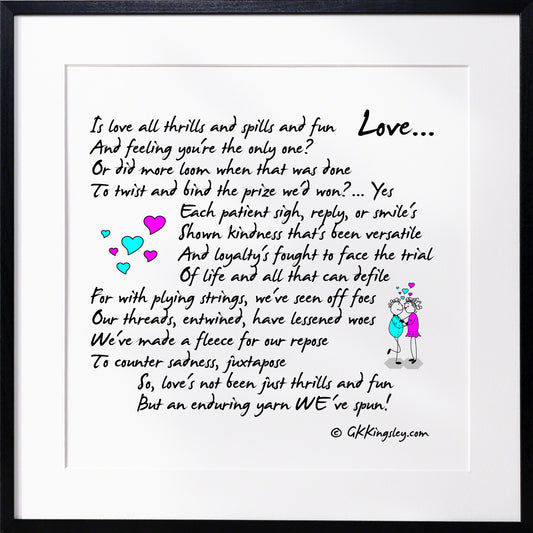 Love...
Is love all thrills and spills and fun
And feeling you're the only one?
Or did more loom when that was done
To twist and bind the prize we'd won?... Yes
Each patient sigh, reply, or smile's
Shown kindness that's been versatile
And loyalty's fought to face the trial
Of life and all that can defile
For with plying strings, we've seen off foes
Our threads, entwined, have lessened woes
We've made a fleece for our repose
To counter sadness, juxtapose
So, love's not been just thrills and fun
But an enduring yarn WE've spun!
© GKKingsley.com